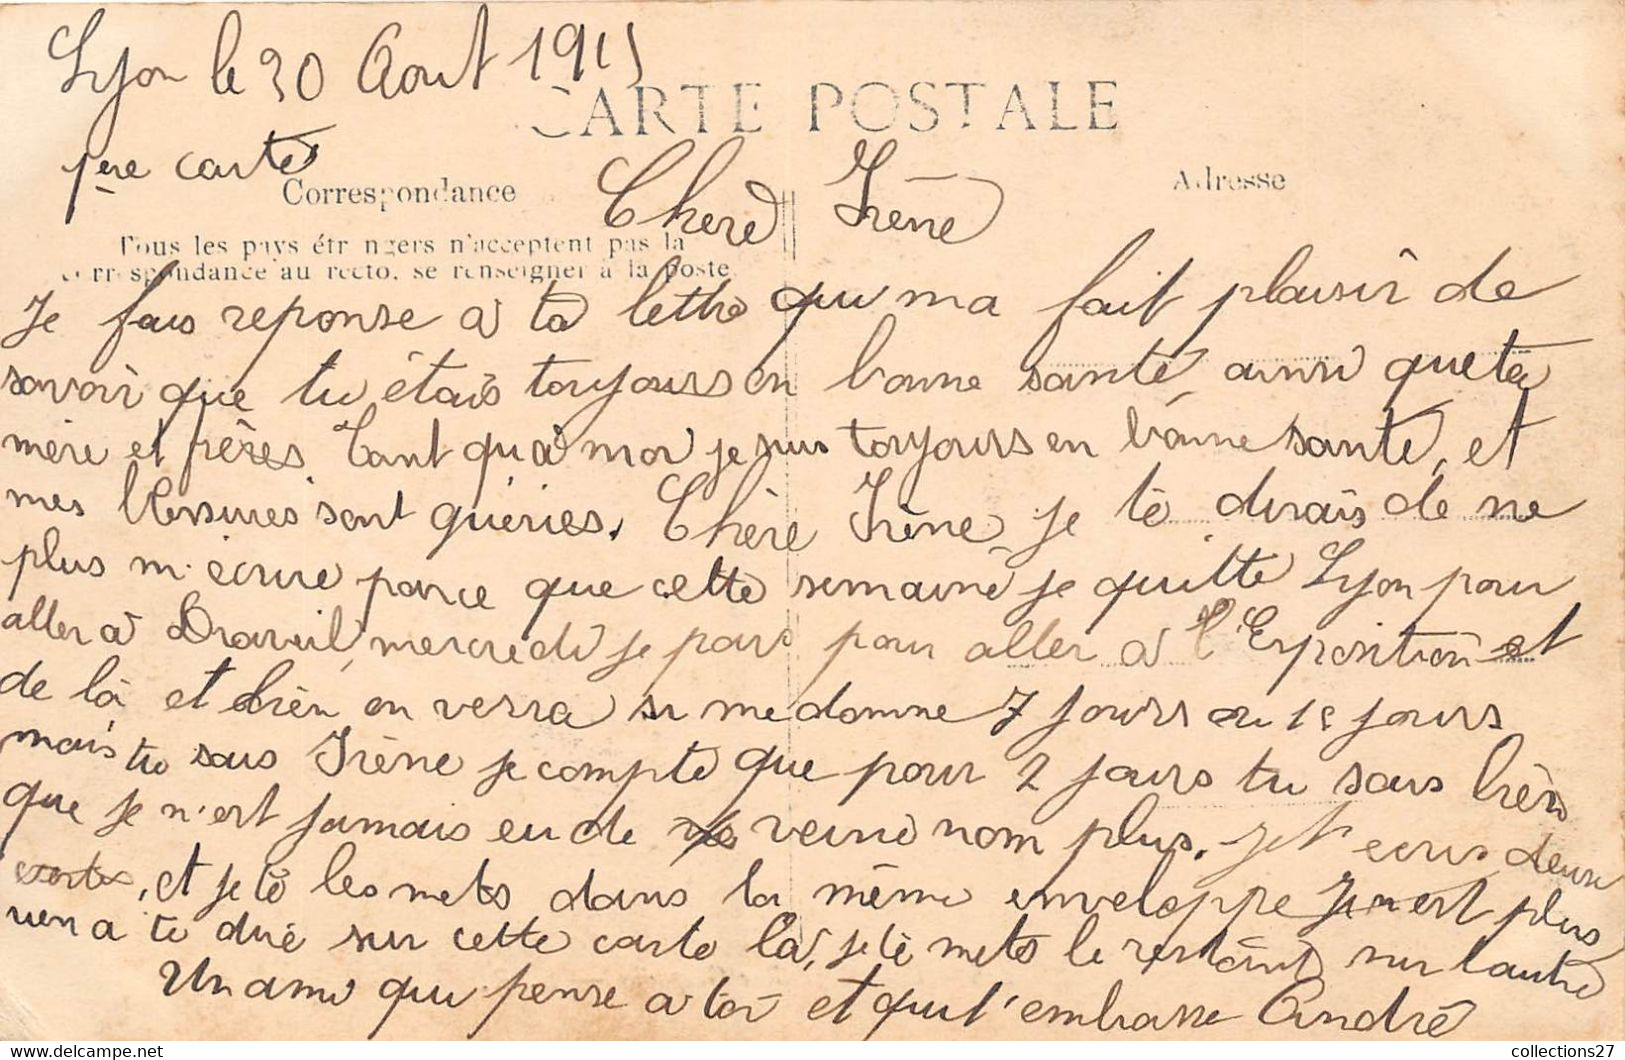 Lyon le 30 Aout 1915
CARTE POSTALE
1ère carte
Correspondance
Adresse
Chere Irène
Tous les pays étrangers n'acceptent pas la
correspondance au recto, se renseigner à la poste
Je fais reponse à ta lettre qui ma fait plaisir de
savoir que tu étais toujours en bonne santé, ainsi que ta
mère et frères. Tant qu'à moi je suis toujours en bonne santé, et
mes blessures sont guéries. Chère Irène je te dirais de ne
plus m'écrire parce que cette semaine je quitte Lyon pour
aller à Draveil, mercredi je pars pour aller à l'Exposition et
de là et bien on verra si me donne 7 jours ou 15 jours
mais tu sais Irène je compte que pour 2 jours tu sais bien
que je n'est jamais eu de veine nom plus. Je t'ecris deux
cartes, et je te les mets dans la même enveloppe je n'est plus
rien a te dire sur cette carte là, je te mets le restant sur lautre
Un ami qui pense a toi et qui t'embrasse André
collections27